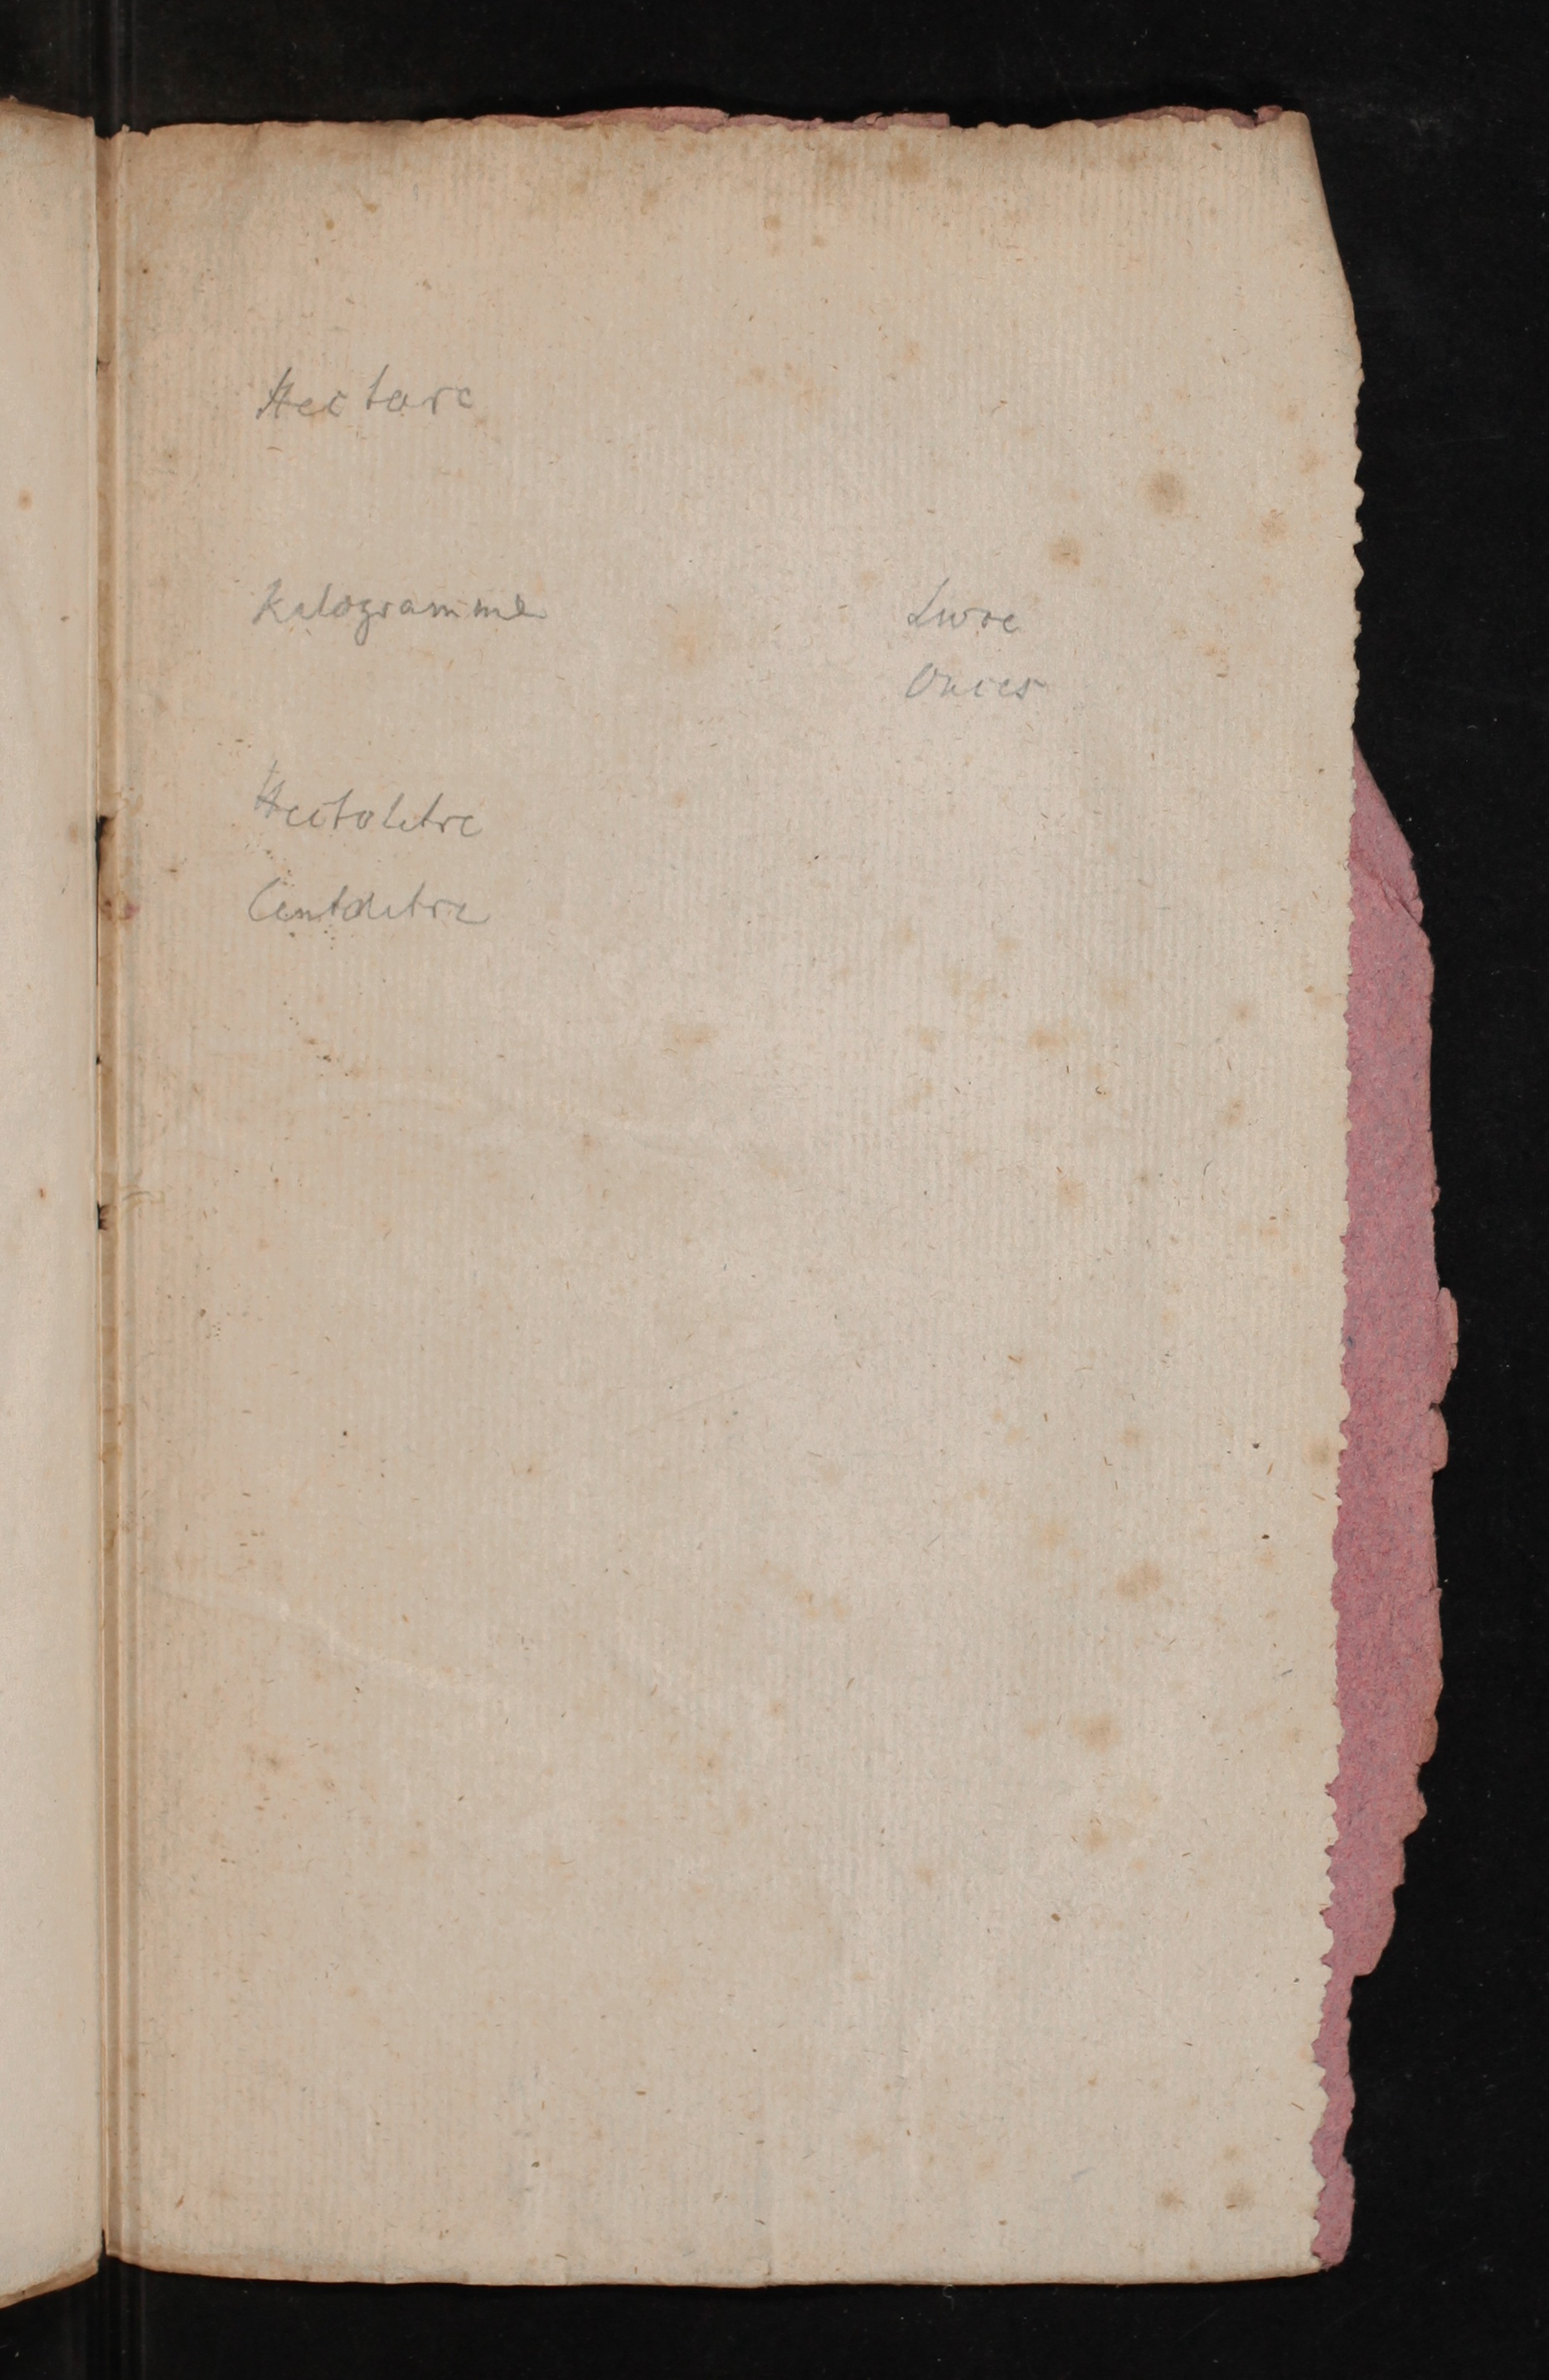 Hectare
Kilogramme Livre
Onces
Hectolitre
Centolitre